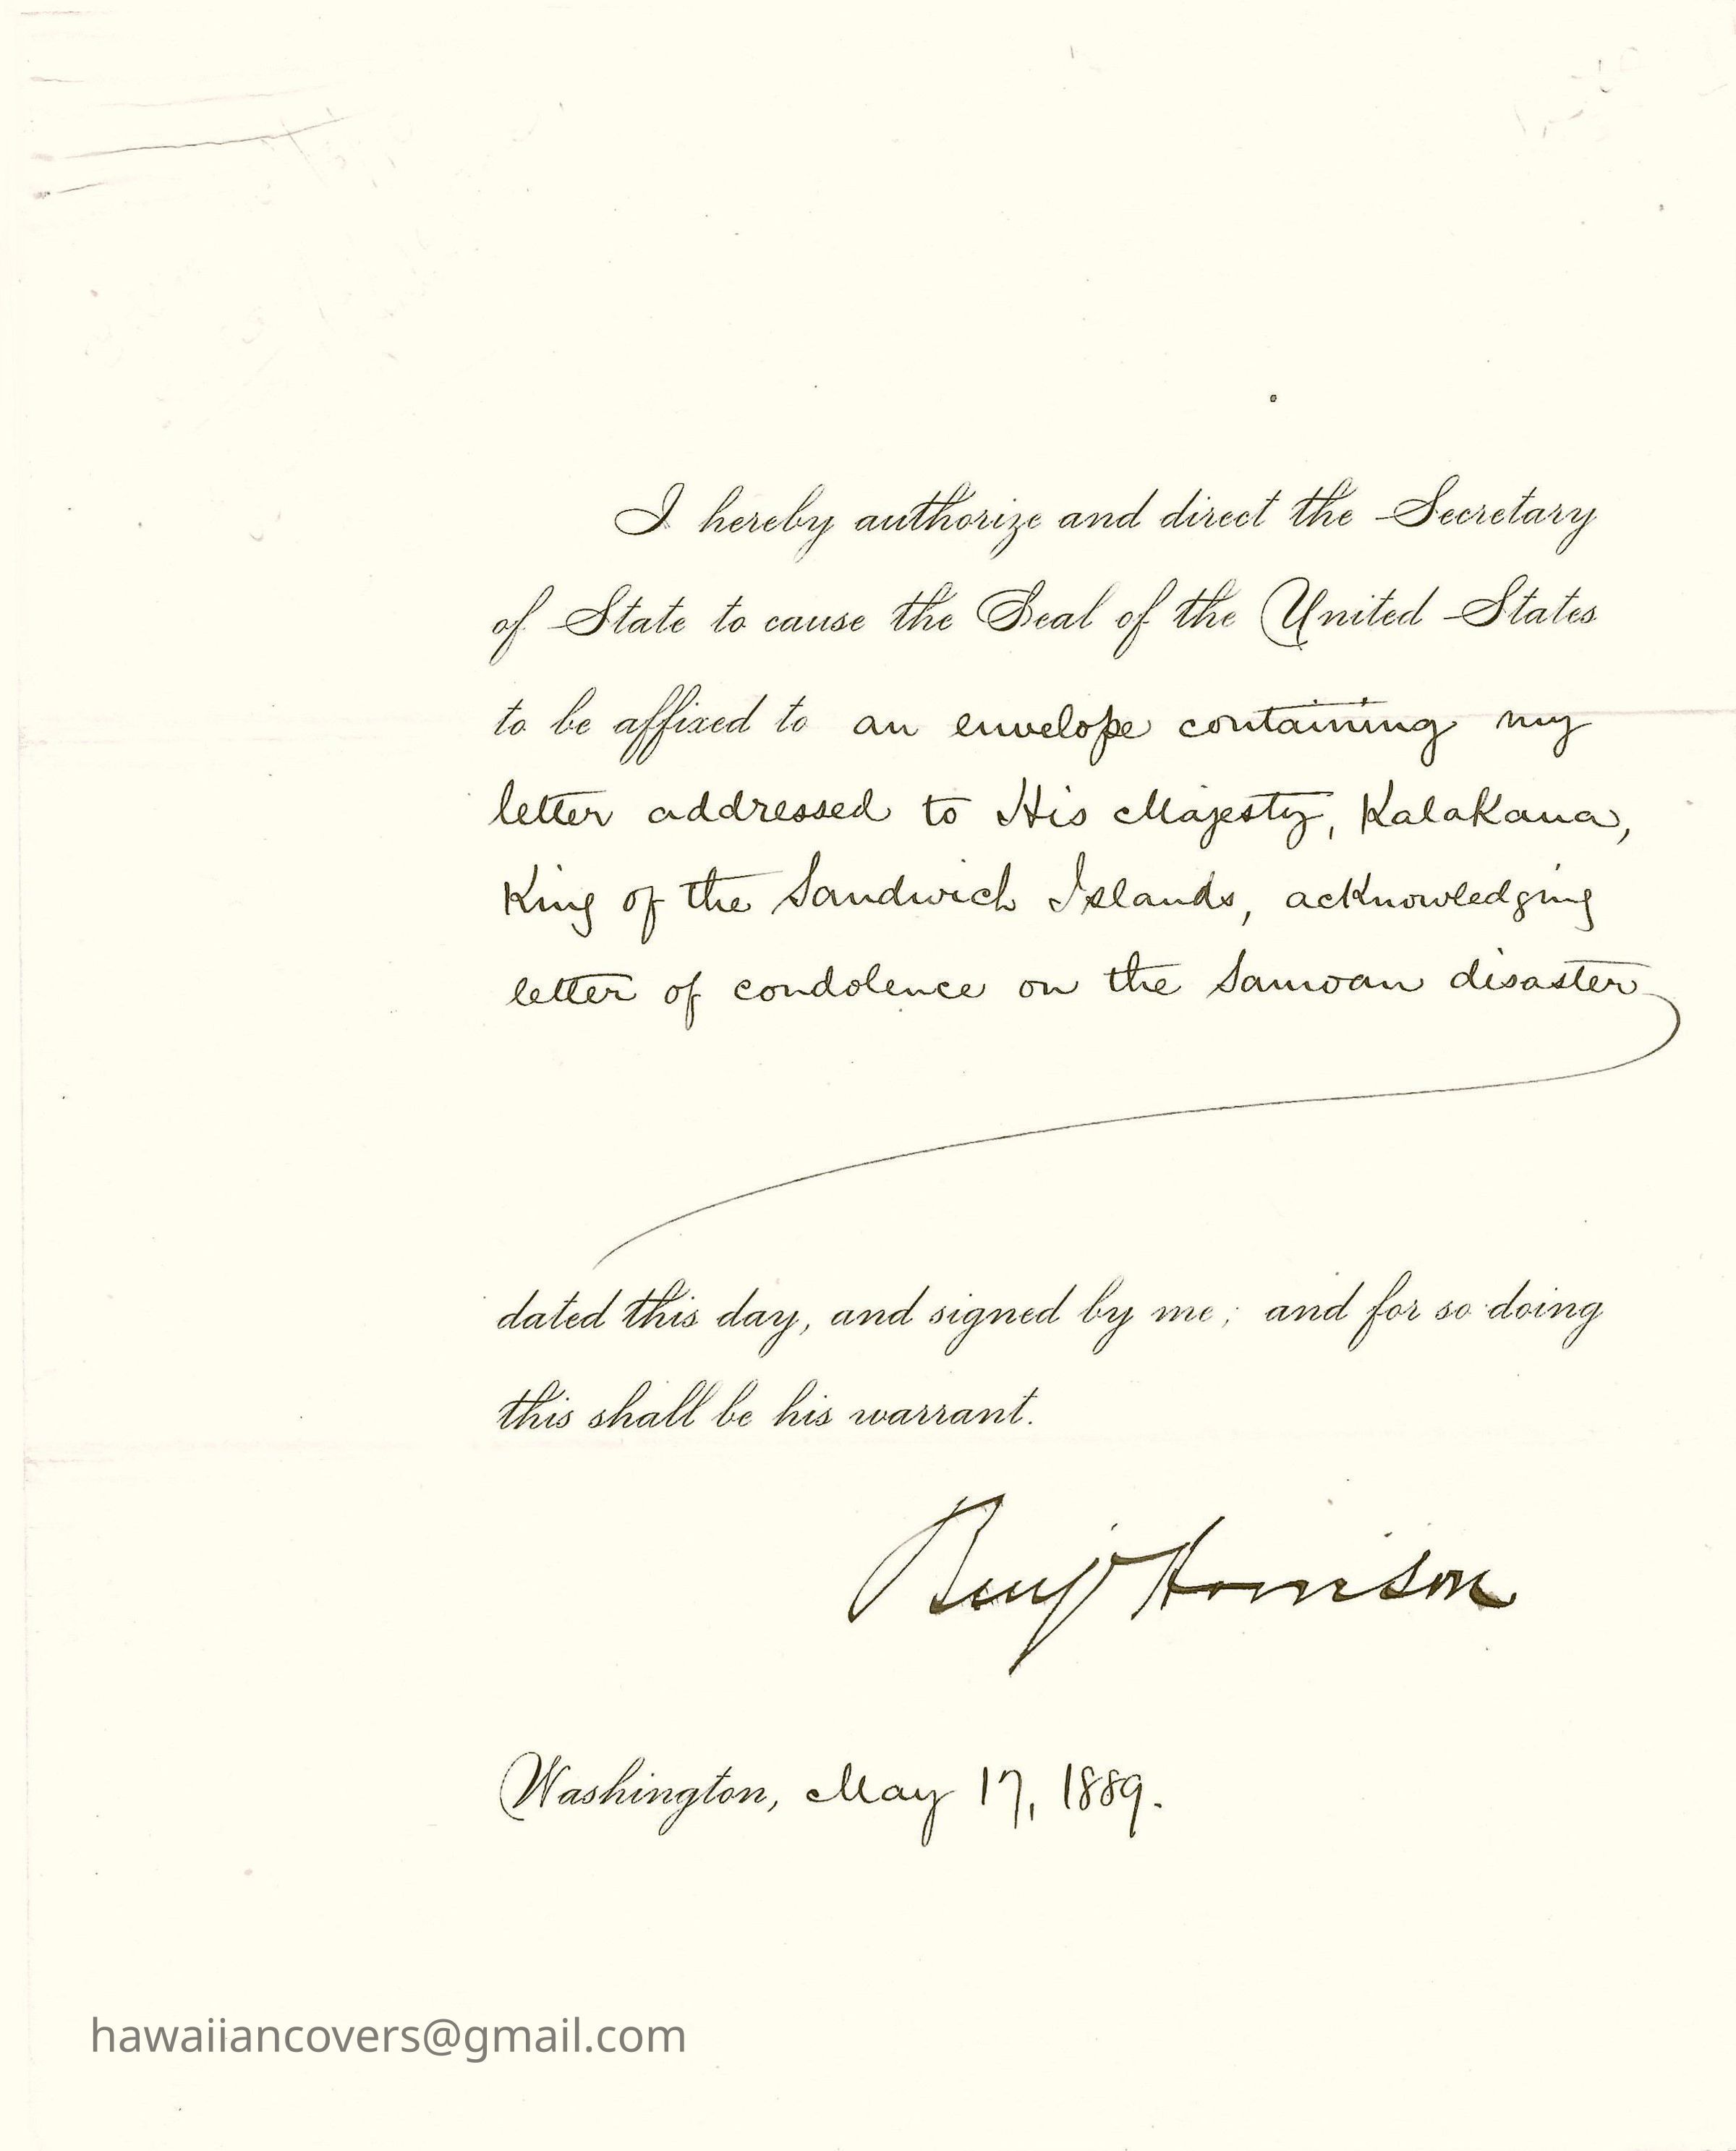 I hereby authorize and direct the Secretary
of State to cause the Seal of the United States
to be affixed to an envelope containing my
letter addressed to His Majesty, Kalakaua,
King of the Sandwich Islands, acknowledging
letter of condolence on the Samoan disaster
dated this day, and signed by me; and for so doing
this shall be his warrant.
Benj Harrison
Washington, May 17, 1889.
hawaiiancovers@gmail.com